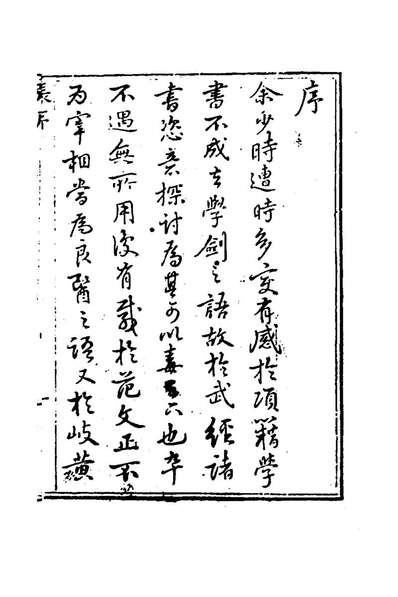 序
余少時遭時多变有感於項籍學
書不成去學劍之語故於武經諸
書恣意探討爲其可以毒天下也卒
不遇無所用後有感於范文正不
为宰相當爲良醫之語又於岐黃
序